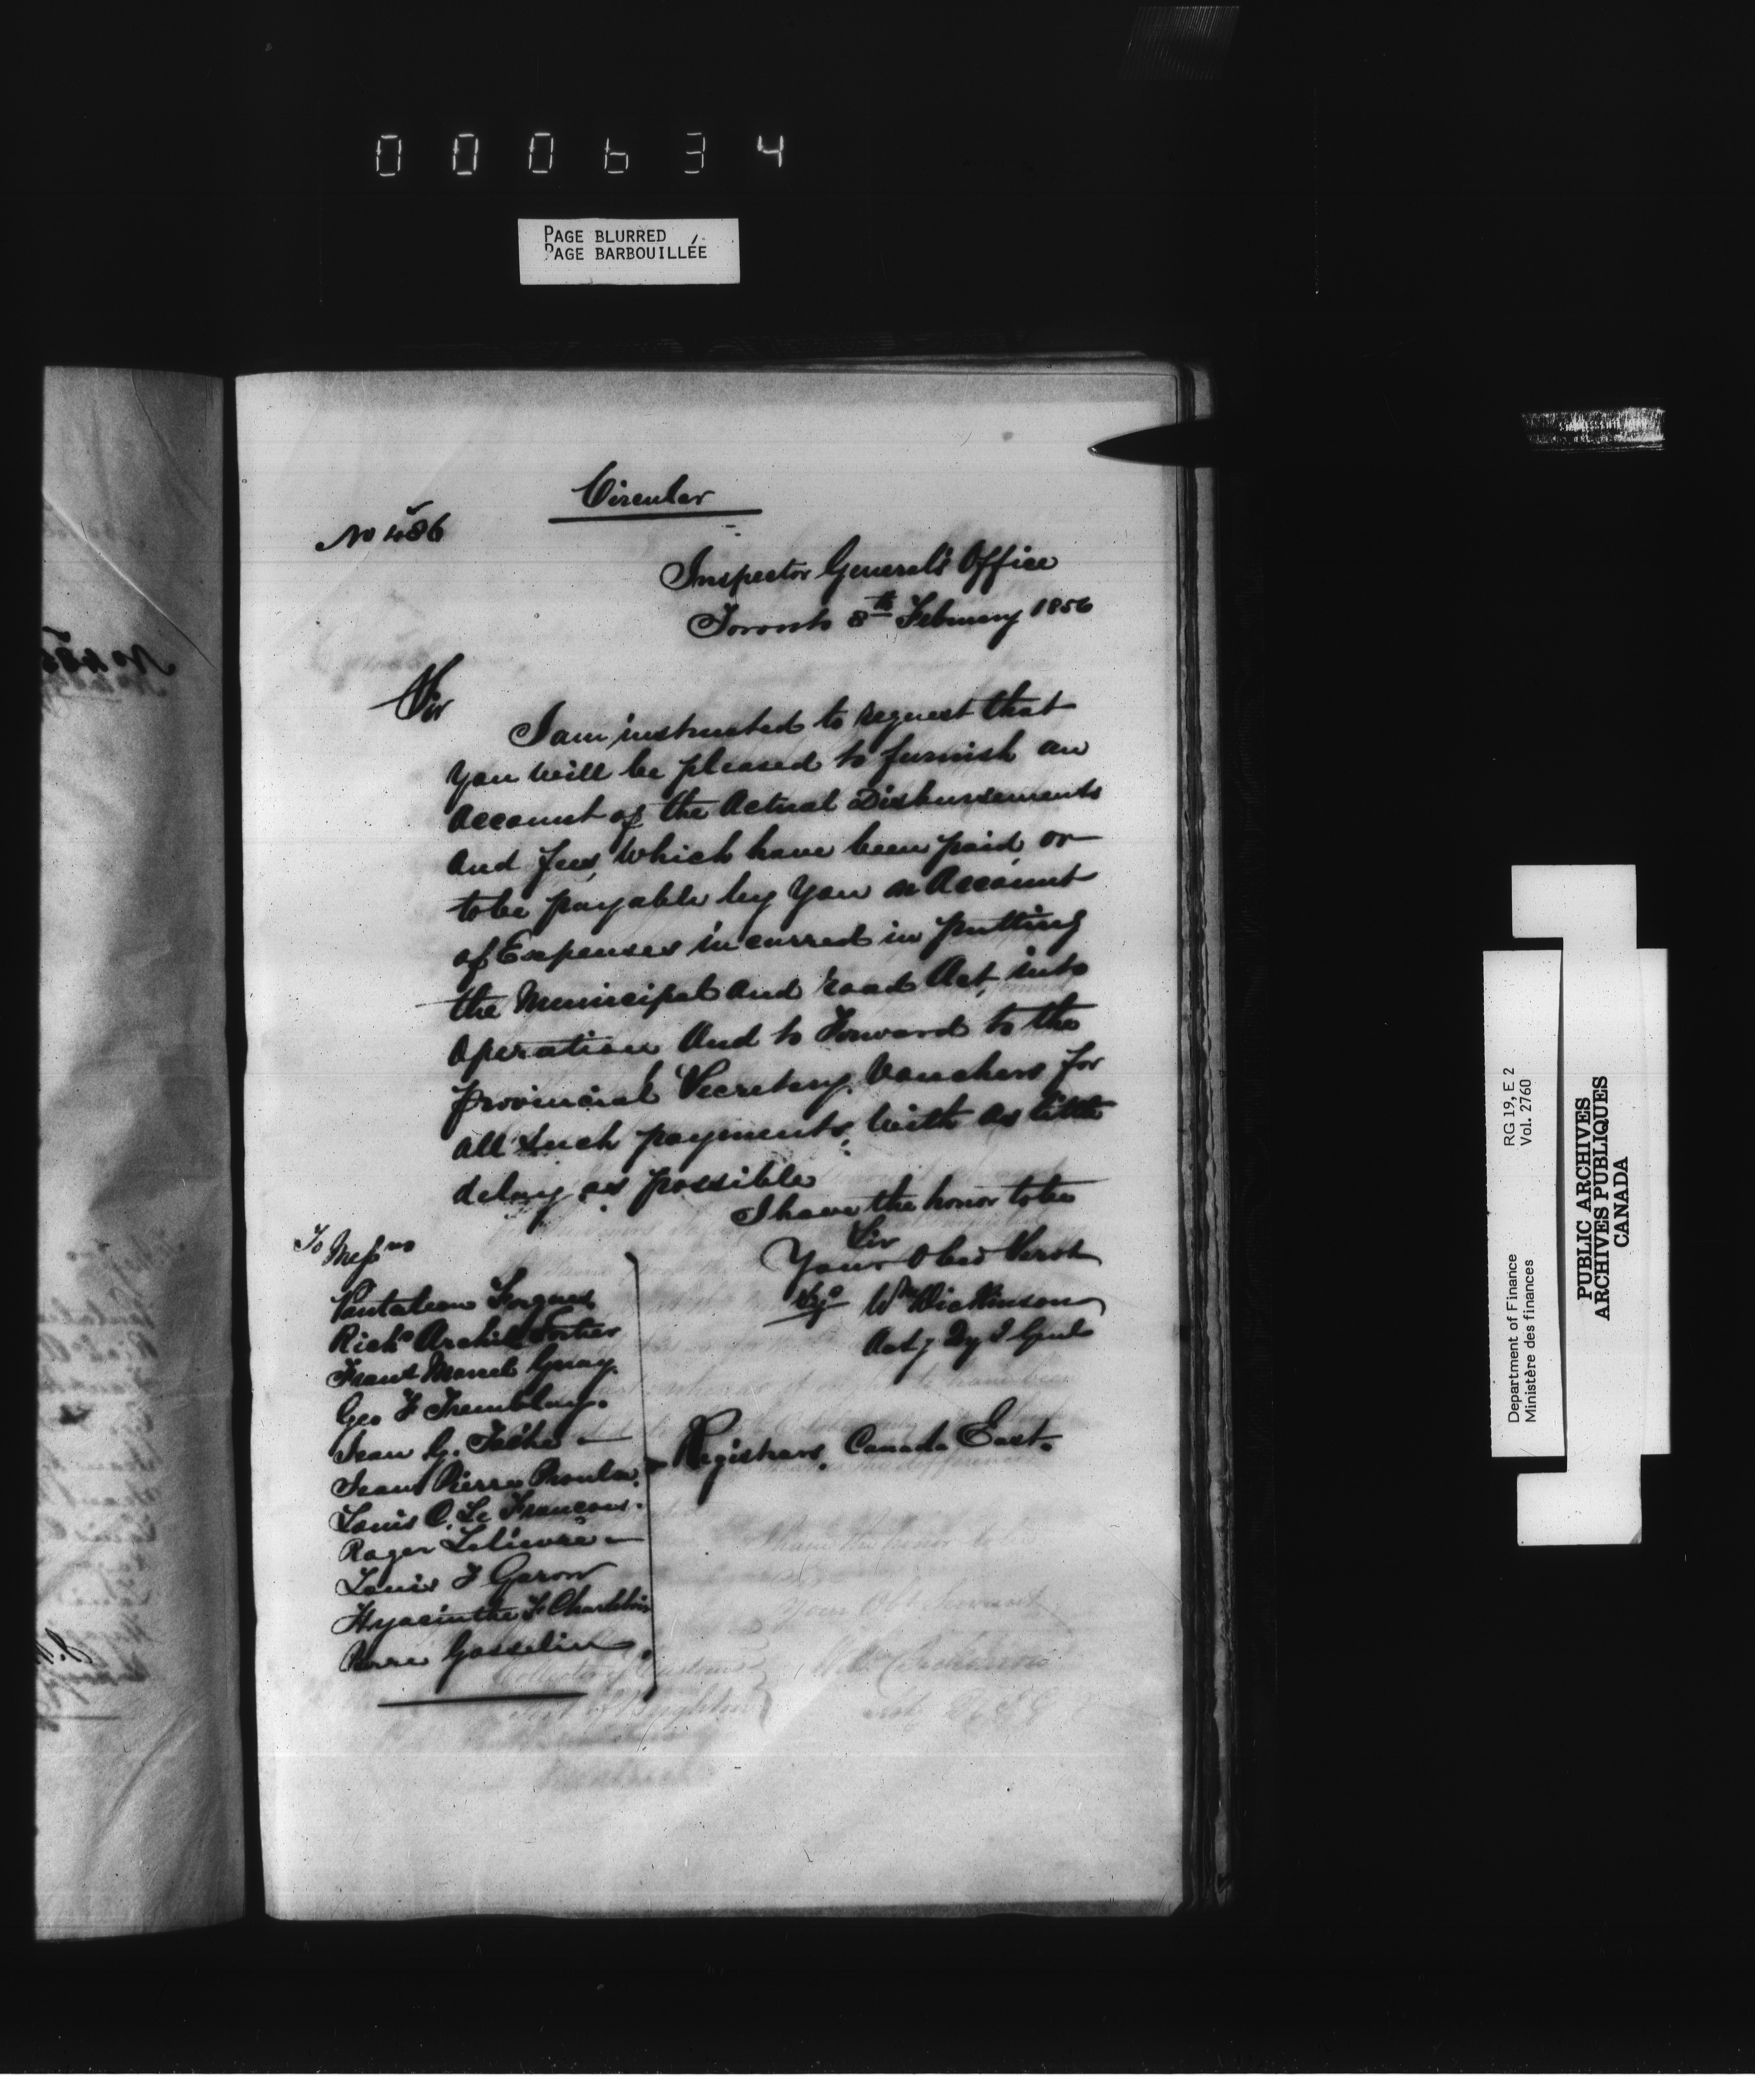 000634
PAGE BLURRED
PAGE BARBOUILLÉE
Circular
No 486
Inspector General's Office
Toronto 8th February 1856
Sir
I am instructed to request that
you will be pleased to furnish an
Account of the Actual Disbursements
And fees, which have been paid, or
to be payable by you on Account
of Expenses incurred in putting
the Municipal and road Act, into
Operation And to Forward to the
Provincial Secretary Vouchers for
all such payments, with as little
delay as possible
I have the honor to be
Sir
Your Obed Servt
Wm Dickinson
Actg Dy I Genl
To Messrs
Pantaleon Forgues
Richd Archile Fortier
Frans Marcel Guay.
Geo F Tremblay.
Jean G. Taché —
Jean Pierre Proulx.
Louis O. Le Francois.
Roger Lelievre —
Louis F Garon
Hyacinthe F Charlebois
Pierre Gosselin
Registrars, Canada East.
Department of Finance RG 19, E 2
Ministère des finances Vol. 2760
PUBLIC ARCHIVES
ARCHIVES PUBLIQUES
CANADA